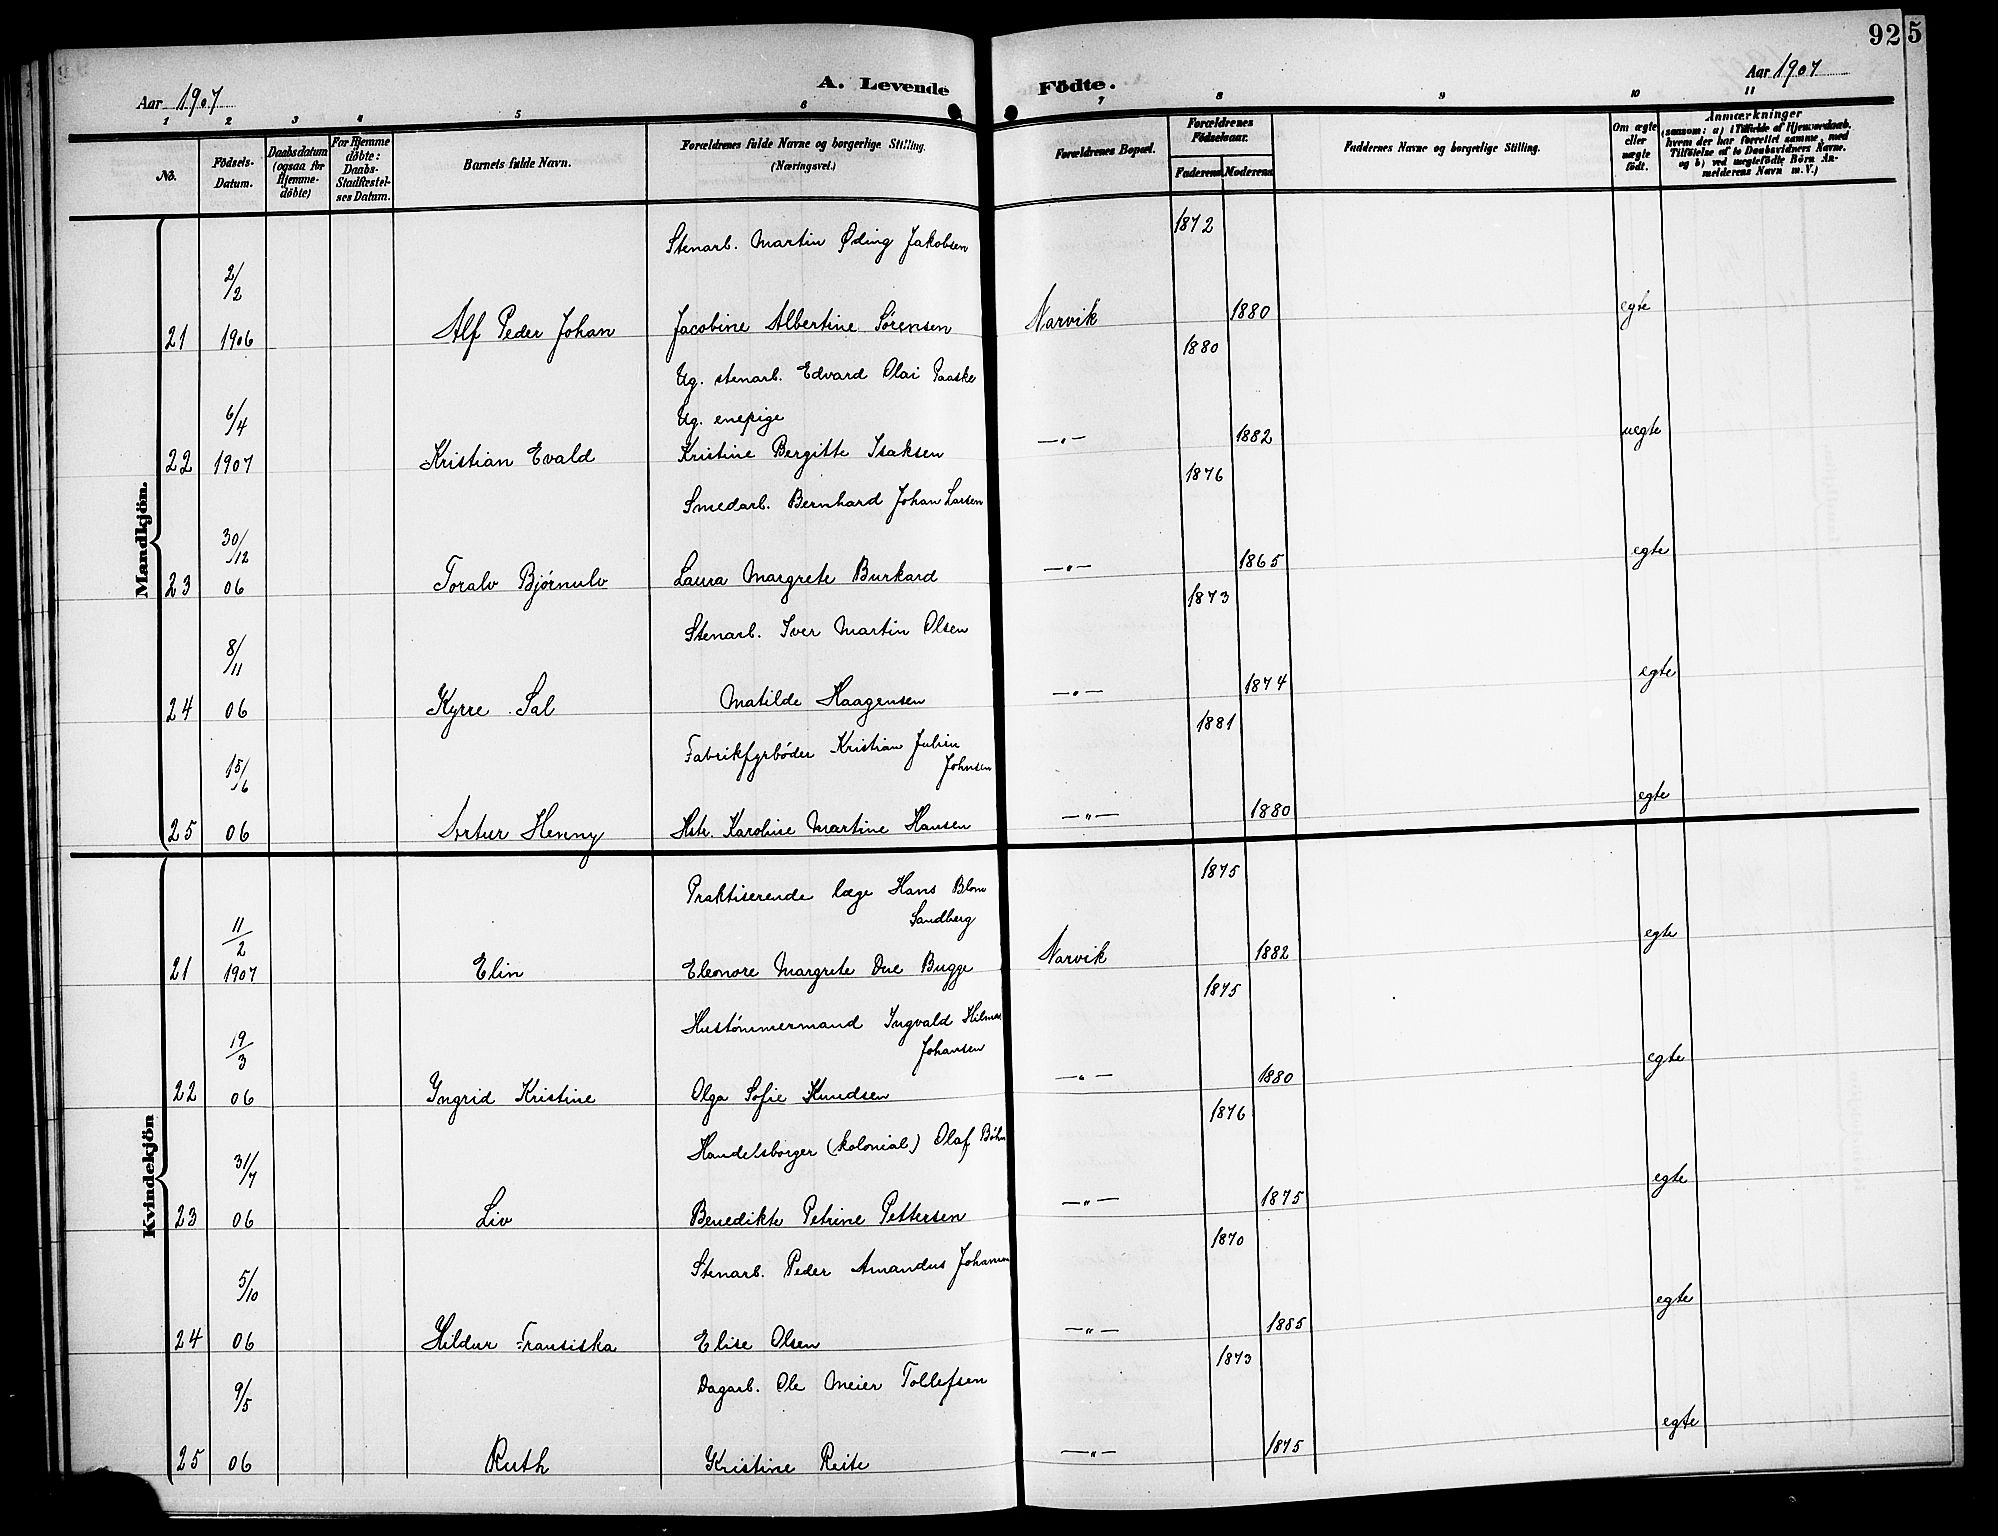 925
Aar 1907
A. Levende Födte.
Aar 1907
1 2 3 4 5 6 7 8 9 10 11
No.
Födsels-Datum.
Daabsdatum (ogsaa for Hjemme-döbte)
For Hjemme döbte: Daabs-Stadfæstel-ses Datum.
Barnets fulde Navn.
Forældrenes fulde Navne og borgerlige Stilling. (Næringsvei.)
Forældrenes Bopæl.
Forældrenes Födselsaar.
Faderens Moderens
Faddernes Navne og borgerlige Stilling.
Om ægte eller uægte födt.
Anmærkninger
(saasom: a) i Tilfælde af Hjemmedaab,
hvem der har forrettet samme, med
Tilföielse af to Daabsvidners Navne.
og b) ved uegtefödte Börn An-
melderens Navn m. V.)
Mandkjön.
Stenarb. Martin Øding Jakobsen 1872
2/2
21 1906 Alf Peder Johan Jacobine Albertine Sørensen Narvik 1880 egte
Ug. stenarb. Edvard Olai Paaske 1880
6/4 Ug. enepige
22 1907 Kristian Evald Kristine Bergitte Isaksen —„— 1882 uegte
Smedarb. Bernhard Johan Larsen 1876
30/12
23 06 Toralv Bjørnulv Laura Margrete Burkard —„— 1865 egte
Stenarb. Iver Martin Olsen 1873
8/11
24 06 Kyrre Sal Matilde Haagensen —„— 1874 egte
Fabrikfyrbøder Kristian Julin Johnsen 1881
15/6
25 06 Artur Henny Hstr. Karoline Martine Hansen —„— 1880 egte
Kvindekjön
Praktiserende læge Hans Blom Sandberg 1875
11/2
21 1907 Elin Eleonore Margrete Due Bugge Narvik 1882 egte
Hustømmermand Ingvald Hilmar Johansen 1875
19/3
22 06 Yngrid Kristine Olga Sofie Knudsen —„— 1880 egte
Handelsborger (kolonial) Olaf Bøhn 1876
31/7
23 06 Liv Benedikte Petrine Pettersen —„— 1875 egte
Stenarb. Peder Amandus Johansen 1870
5/10
24 06 Hildur Fransiska Elise Olsen —„— 1885 egte
Dagarb. Ole Meier Tollefsen 1873
9/5
25 06 Ruth Kristine Reite —„— 1875 egte